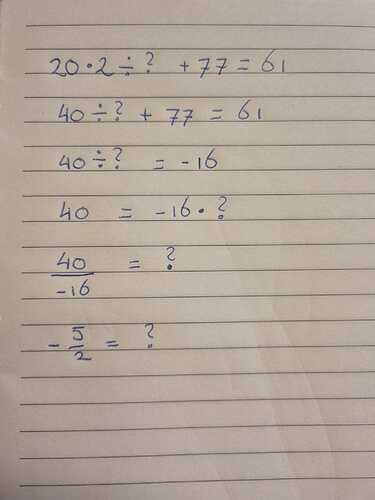 20·2÷? +77=61
40÷? + 77 = 61
40÷? = -16
40 = -16·?
40/-16 = ?
-5/2 = ?